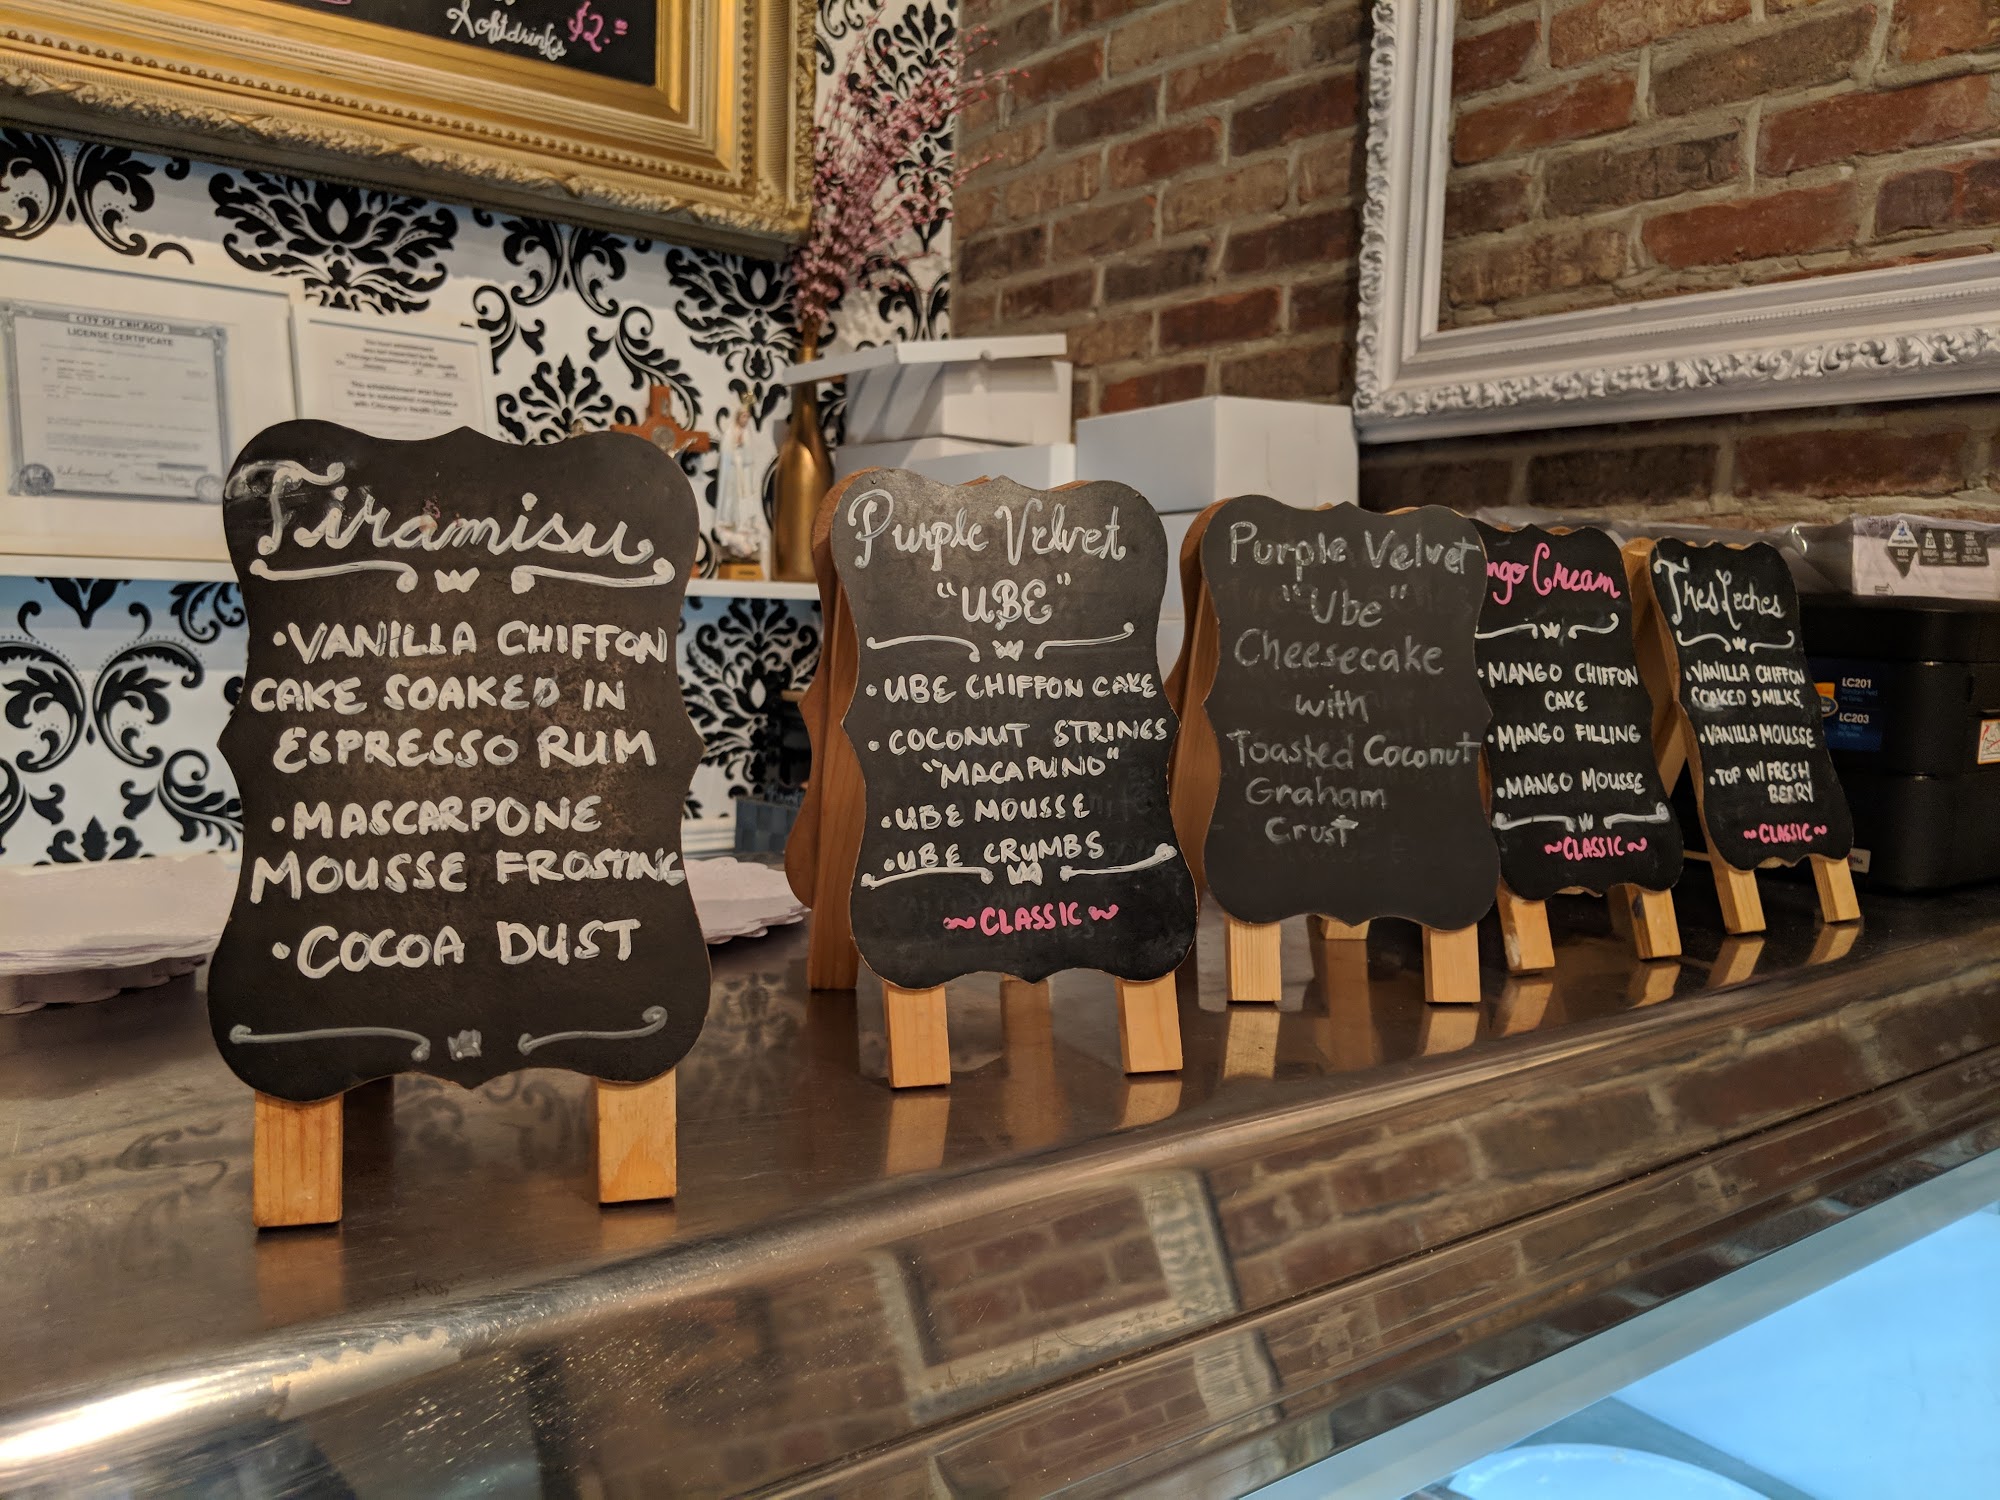 Softdrinks $2.00
CITY OF CHICAGO
LICENSE CERTIFICATE
Tiramisu
•VANILLA CHIFFON
CAKE SOAKED IN
ESPRESSO RUM
•MASCARPONE
MOUSSE FROSTING
•COCOA DUST
Purple Velvet
"UBE"
•UBE CHIFFON CAKE
•COCONUT STRINGS
"MACAPUNO"
•UBE MOUSSE
•UBE CRUMBS
~CLASSIC~
Purple Velvet
"Ube"
Cheesecake
with
Toasted Coconut
Graham
Crust
ngo Cream
•MANGO CHIFFON
CAKE
•MANGO FILLING
•MANGO MOUSSE
~CLASSIC~
Tres Leches
•VANILLA CHIFFON
SOAKED 3 MILKS.
•VANILLA MOUSSE
•TOP W/ FRESH
BERRY
~CLASSIC~
LC201
LC203